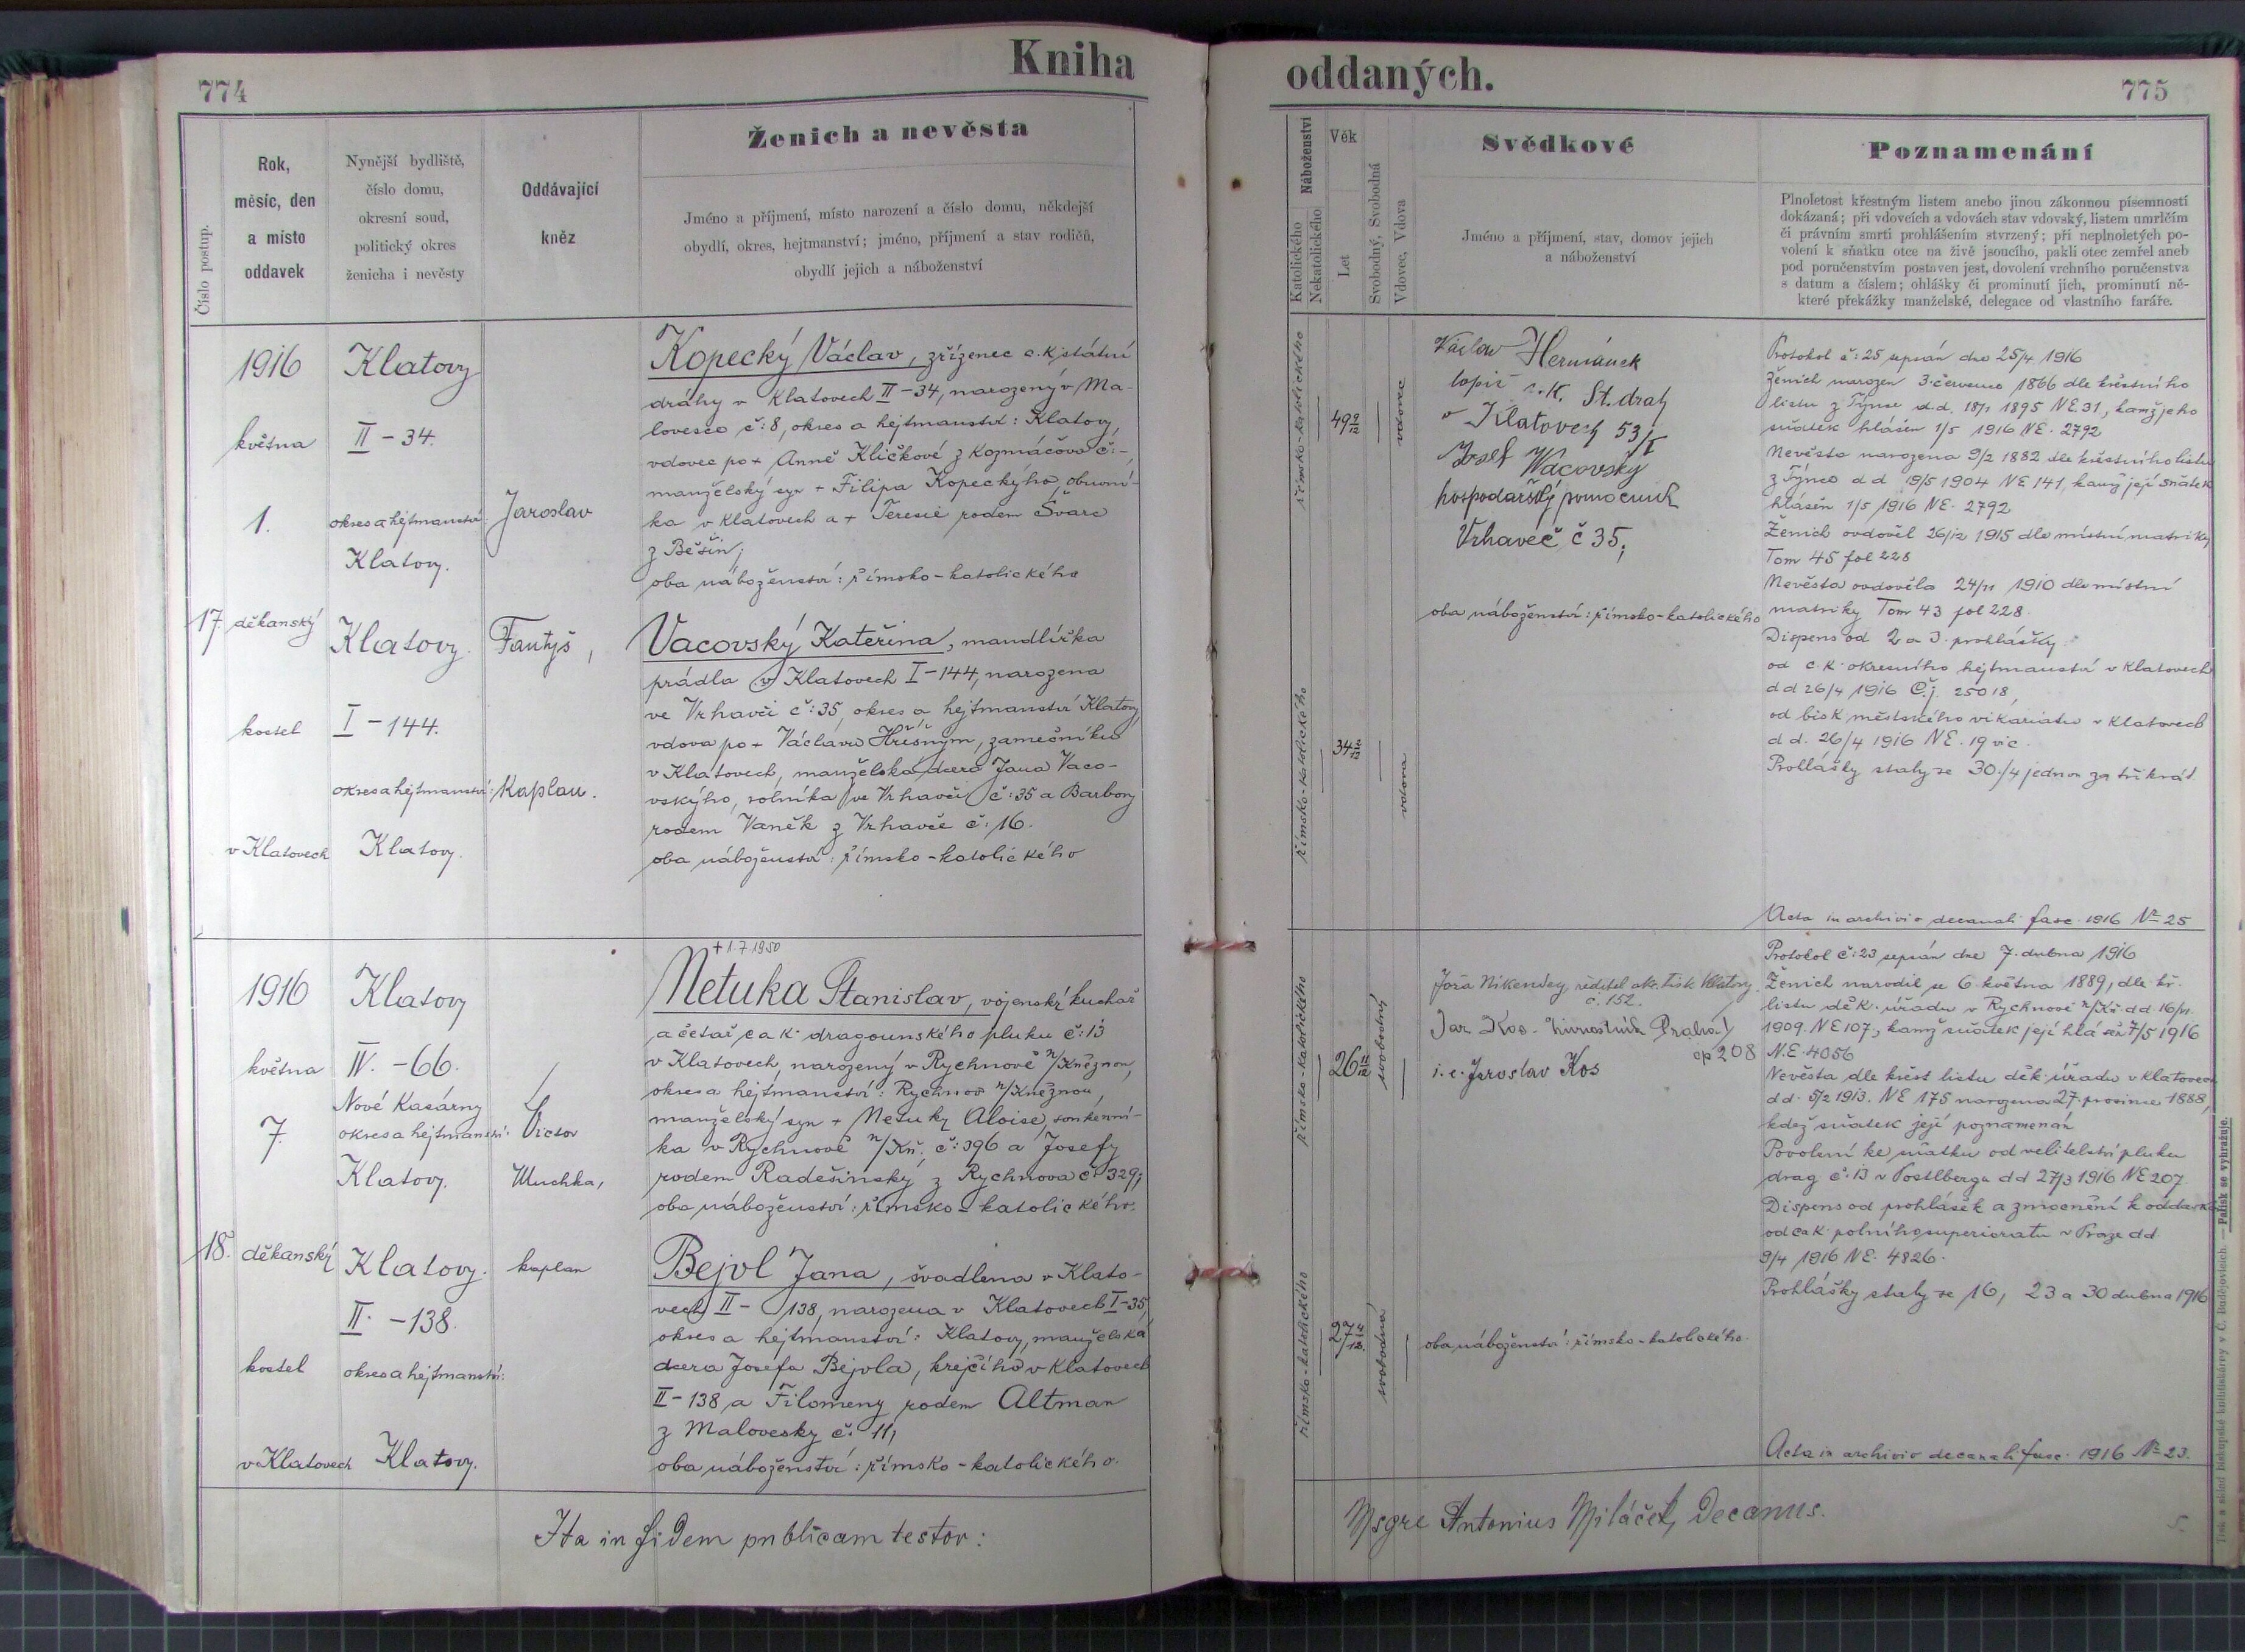 774
Kniha
oddaných.
775
Číslo postup.
Rok,
měsíc, den
a místo
oddavek
Nynější bydliště,
číslo domu,
okresní soud,
politický okres
ženicha i nevěsty
Oddávající
kněz
Ženich a nevěsta
Jméno a příjmení, místo narození a číslo domu, někdejší
obydlí, okres, hejtmanství; jméno, příjmení a stav rodičů,
obydlí jejich a náboženství
Náboženství
Katolického
Nekatolického
Věk
Let
Svobodný, Svobodná
Vdovec, Vdova
Svědkové
Jméno a příjmení, stav, domov jejich
a náboženství
Poznamenání
Plnoletost křestným listem anebo jinou zákonnou písemností
dokázaná; při vdovcích a vdovách stav vdovský, listem umrlčím
či právním smrti prohlášením stvrzený; při neplnoletých po-
volení k sňatku otce na živě jsoucího, pakli otec zemřel aneb
pod poručenstvím postaven jest, dovolení vrchního poručenstva
s datum a číslem; ohlášky či prominutí jich, prominutí ně-
které překážky manželské, delegace od vlastního faráře.
17.
1916
května
1.
děkanský
kostel
v Klatovech
Klatovy
II - 34.
okres a hejtmanství:
Klatovy.
Klatovy.
I - 144.
okres a hejtmanství:
Klatovy.
Jaroslav
Fantyš,
Kaplan.
Kopecký Václav, zřízenec c. k. státní
dráhy v Klatovech II - 34, narozený v Ma-
lovesce č: 8, okres a hejtmanství: Klatovy,
vdovec po + Anně Kličkové z Kozmáčova č: -,
manželský syn + Filipa Kopeckýho, obuvní-
ka v Klatovech a + Teresie rodem Švarc
z Běšin;
oba náboženství: římsko-katolického
Vacovský Kateřina, mandlířka
prádla v Klatovech I - 144, narozena
ve Vrhavči č: 35, okres a hejtmanství Klatovy,
vdova po + Václavu Hříšným, zámečníku
v Klatovech, manželská dcera Jana Vaco-
vskýho, rolníka ve Vrhavči č: 35 a Barbory
rodem Vaněk z Vrhavče č: 16.
oba náboženství: římsko-katolického
římsko-katolického
49 9/12
vdovec
římsko-katolického
34 2/12
vdova
Václav Heřmánek
topič c. K. St. drah
v Klatovech 53/I
Josef Wacovský
hospodářský pomocník
Vrhaveč č 35;
oba náboženství: římsko-katolického
Protokol č: 25 sepsán dne 25/4 1916
Ženich narozen 3. července 1866 dle křestního
listu z Týnce d. d. 18/1 1895 NE. 31, kamž jeho
sňatek hlášen 1/5 1916 NE. 2792
Nevěsta narozena 9/2 1882 dle křestního listu
z Týnce d d 19/5 1904 NE 141, kamž její snatek
hlášen 1/5 1916 NE. 2792
Ženich ovdověl 26/12 1915 dle místní matriky
Tom 45 fol 228
Nevěsta ovdověla 24/11 1910 dle místní
matriky Tom 43 fol 228.
Dispens od 2 a 3. prohlášky:
od c. k. okresního hejtmanství v Klatovech
d d 26/4 1916 Č. j. 25018,
od bisk městského vikariatu v Klatovech
d d. 26/4 1916 NE. 19 vic.
Prohlášky staly se 30./4 jednou za třikrát
Acta in archivio decanali fasc. 1916 No 25
18.
1916
května
7.
děkanský
kostel
v Klatovech
Klatovy
IV. - 66.
Nové Kasárny
okres a hejtmanství:
Klatovy.
Klatovy.
II. - 138.
okres a hejtmanství:
Klatovy.
Victor
Muchka,
kaplan
+ 1. 7 1950
Netuka Stanislav, vojenský kuchař
a četař c a k. dragounského pluku č: 13
v Klatovech, narozený v Rychnově n/Kněžnou,
okres a hejtmanství: Rychnov n/Kněžnou,
manželský syn + Netuky Aloise, soukenní-
ka v Rychnově n/Kn. č: 396 a Josefy
rodem Radešinský z Rychnova č 329;
oba náboženství: římsko-katolického.
Bejvl Jana, švadlena v Klato-
vech II - 138, narozena v Klatovech I - 35,
okres a hejtmanství: Klatovy, manželská
dcera Josefa Bejvla, krejčího v Klatovech
II - 138 a Filomeny rodem Altman
z Malovesky č: 11,
oba náboženství: římsko-katolického.
římsko-katolického
26 11/12
svobodný
římsko-katolického
27
svobodná
Jóža Nikendey, ředitel akc. tisk Klatovy.
č. 152.
Jar Kos - živnostník Praha I
čp 208
i. e. Jaroslav Kos
oba náboženství: římsko-katolického.
Protokol č: 23 sepsán dne 7. dubna 1916
Ženich narodil se 6. května 1889, dle kř.
listu děk. úřadu v Rychnově n/Kn. dd. 16/11
1909. NE 107, kamž sňatek její hlášen 7/5 1916
N. E. 4056
Nevěsta dle křest listu děk. úřadu v Klatovech
d d. 5/2 1913. NE 175 narozena 27. prosince 1888,
kdež sňatek její poznamenán
Povolení ke sňatku od velitelství pluku
drag č: 13 v Postlbergu dd 27/3 1916 NE 207.
Dispens od prohlášek a zmocnění k oddavkám
od c a k. polního superioratu v Praze dd.
9/4 1916 NE. 4826.
Prohlášky staly se 16, 23 a 30 dubna 1916
Acta in archivio decanali fasc. 1916 No 23.
Ita in fidem publicam testor:
Msgre Antonius Miláček, Decanus.
Tisk a sklad biskupské knihtiskárny v Č. Budějovicích. — Patisk se vyhražuje.